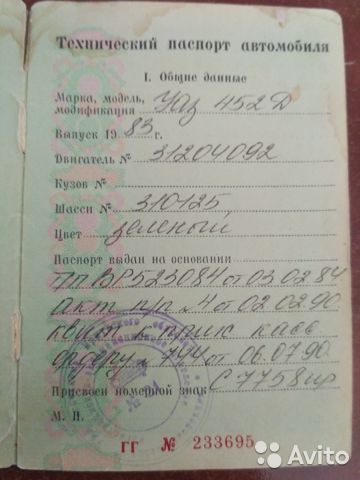 Технический паспорт автомобиля
I. Общие данные
Марка, модель,
модификация Уаз 452Д
Выпуск 19 83 г.
Двигатель № 31204092
Кузов №
Шасси № 310125
Цвет зеленый
Паспорт выдан на основании
ТП ВР523084 от 03.02.84
акт п/п №4 от 02.02.90
квит к прих касс
ордеру № 794 от 06.07.90
Присвоен номерной знак С7758
М. П.
ГГ № 233695
Avito